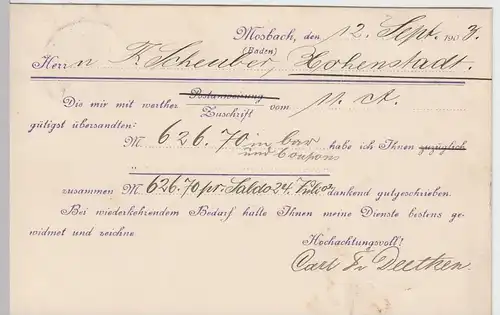 Mosbach, den 12. Sept. 1903.
(Baden)
Herrn F. Scheuber, Hohenstadt.
Die mir mit werther Postanweisung vom 11. ct.
Zuschrift
gütigst übersandten:
M. 626.70 in bar habe ich Ihnen zuzüglich
und Coupons
"
zusammen M. 626.70 pr. Saldo 24. dankend gutgeschrieben.
Bei wiederkehrendem Bedarf halte Ihnen meine Dienste bestens ge-
widmet und zeichne
Hochachtungsvoll!
Carl Fr. Deetken.